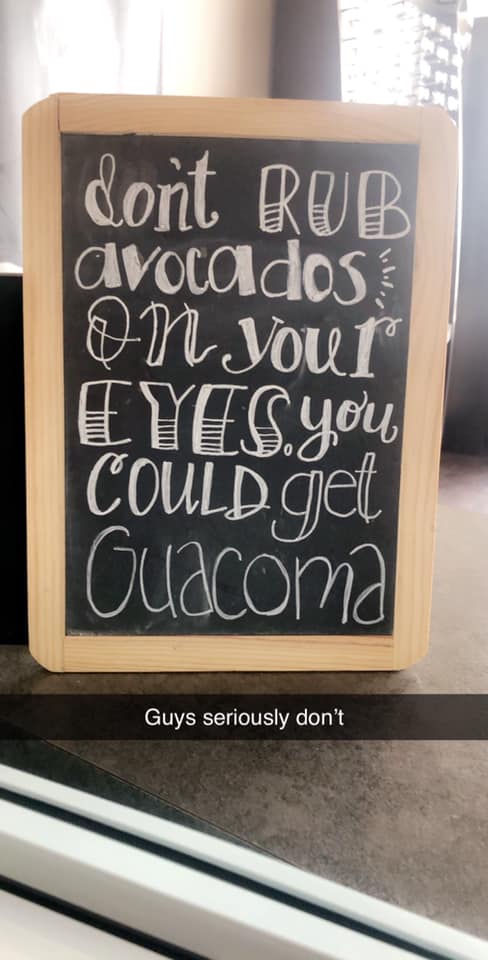 don't RUB
avocados
on your
EYES. you
COULD get
Guacoma
Guys seriously don't